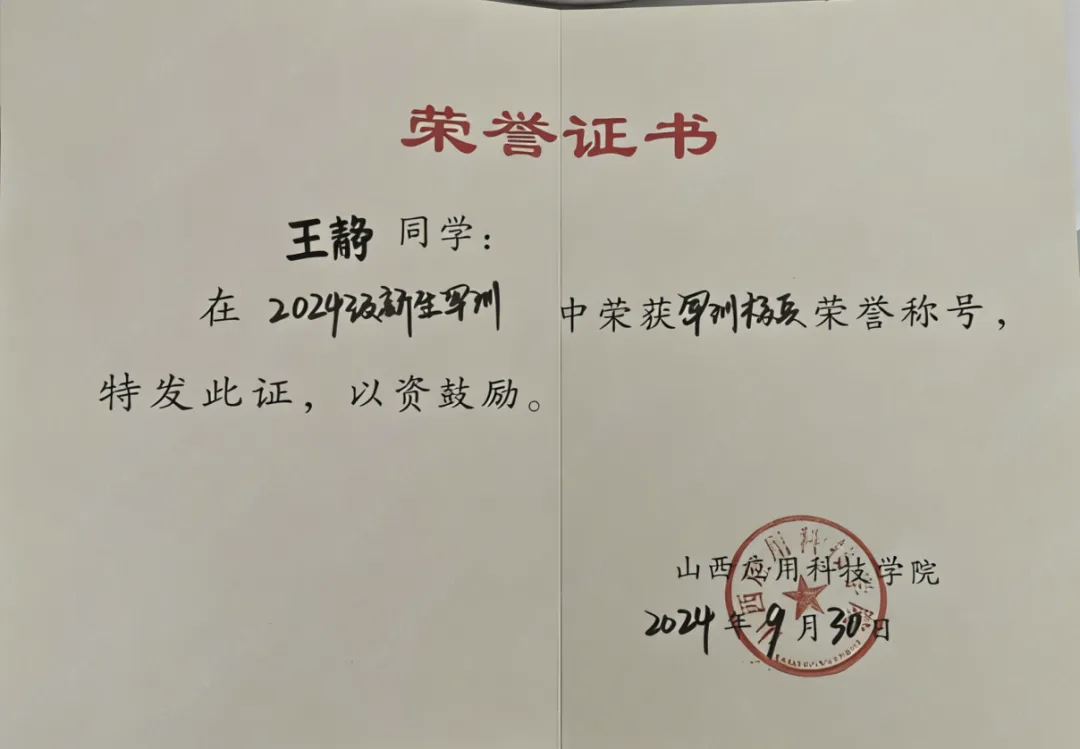 荣誉证书
王静 同学：
在 2024级新生军训 中荣获军训标兵荣誉称号，
特发此证，以资鼓励。
山西应用科技学院
2024年9月30日
山西应用科技学院